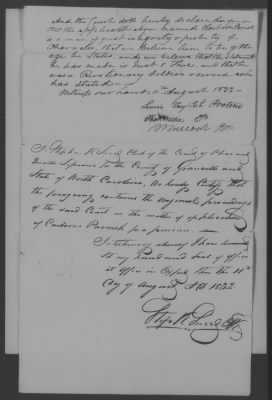 And the Court doth hereby declare
the applicant
is a man of great integrity & probity of
Character, that we believe him to be of the
age he States, and we believe that the statement
he has made is Just & True and that he
was a Revolutionary Soldier & served as he
has Stated
Witness our hands 11th August 1832
Lewis
Bullock
I Stephen K Sneed Clerk of the Court of Pleas and
Quarter Sessions for the County of Granville and
State of North Carolina, do hereby Certify that
the foregoing contains the original proceedings
of the said Court in the matter of application
of Parrish for a pension
In testimony whereof I have hereunto
set my hand and seal of office
at office in Oxford this the 11th
day of August AD 1832
Step K Sneed